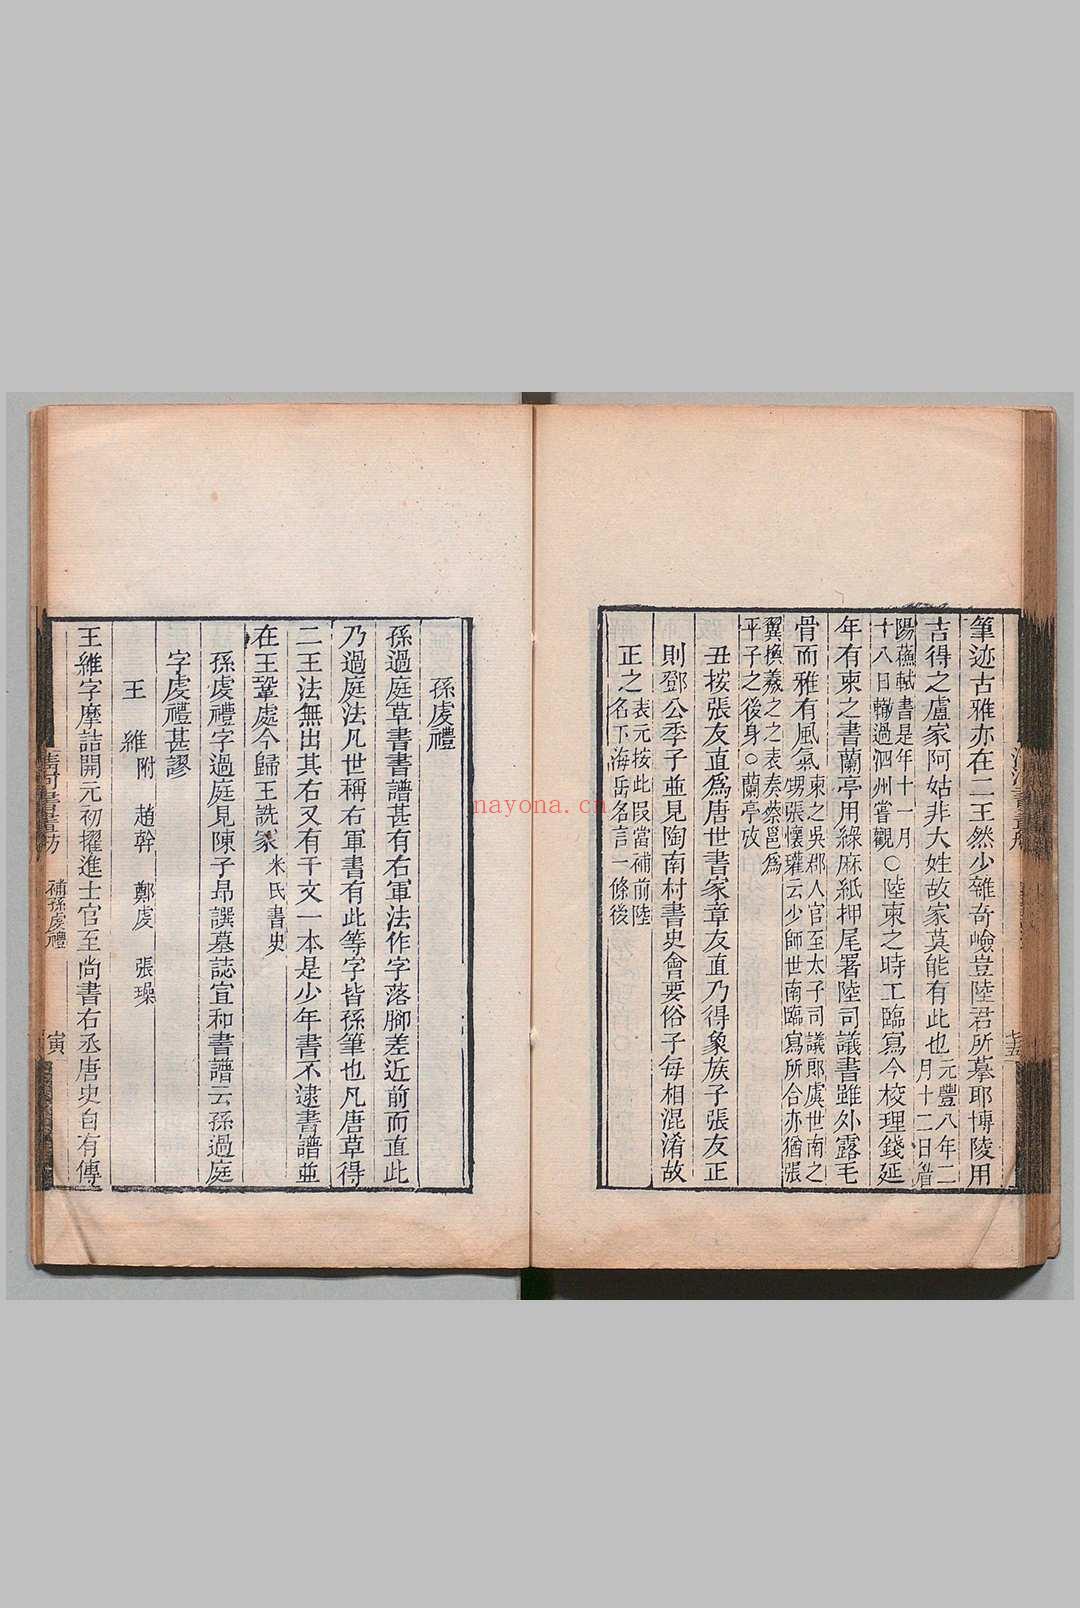 筆迹古雅亦在二王然少雜奇嶮豈陸君所摹耶博陵用
吉得之盧家阿姑非大姓故家莫能有此也元豐八年二月十二日眉
陽蘓軾書是年十一月十八日轍過泗州嘗觀○陸柬之時工臨寫今校理錢延
年有柬之書蘭亭用綠麻紙押尾署陸司議書雖外露毛
骨而雅有風氣柬之吳郡人官至太子司議郎虞世南之甥張懷瓘云少師世南臨寫所合亦猶張
翼換羲之之表奏蔡邕爲平子之後身○蘭亭攷
丑按張友直爲唐世書家章友直乃得象族子張友正
則鄧公季子並見陶南村書史會要俗子每相混淆故
正之表元按此段當補前陸名下海岳名言一條後
孫虔禮
孫過庭草書書譜甚有右軍法作字落腳差近前而直此
乃過庭法凡世稱右軍書有此等字皆孫筆也凡唐草得
二王法無出其右又有千文一本是少年書不逮書譜並
在王鞏處今歸王詵家米氏書史
孫虔禮字過庭見陳子昻譔墓誌宣和書譜云孫過庭
字虔禮甚謬
王維附 趙幹 鄭虔 張璪
王維字摩詰開元初擢進士官至尚書右丞唐史自有傳
清河書畫舫 補孫虔禮 寅
nayona.cn